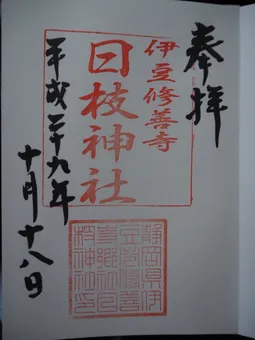 奉拝
伊豆修善寺
日枝神社
平成二十九年
十月十八日
静岡県伊
豆市修善
寺郷社日
枝神社印